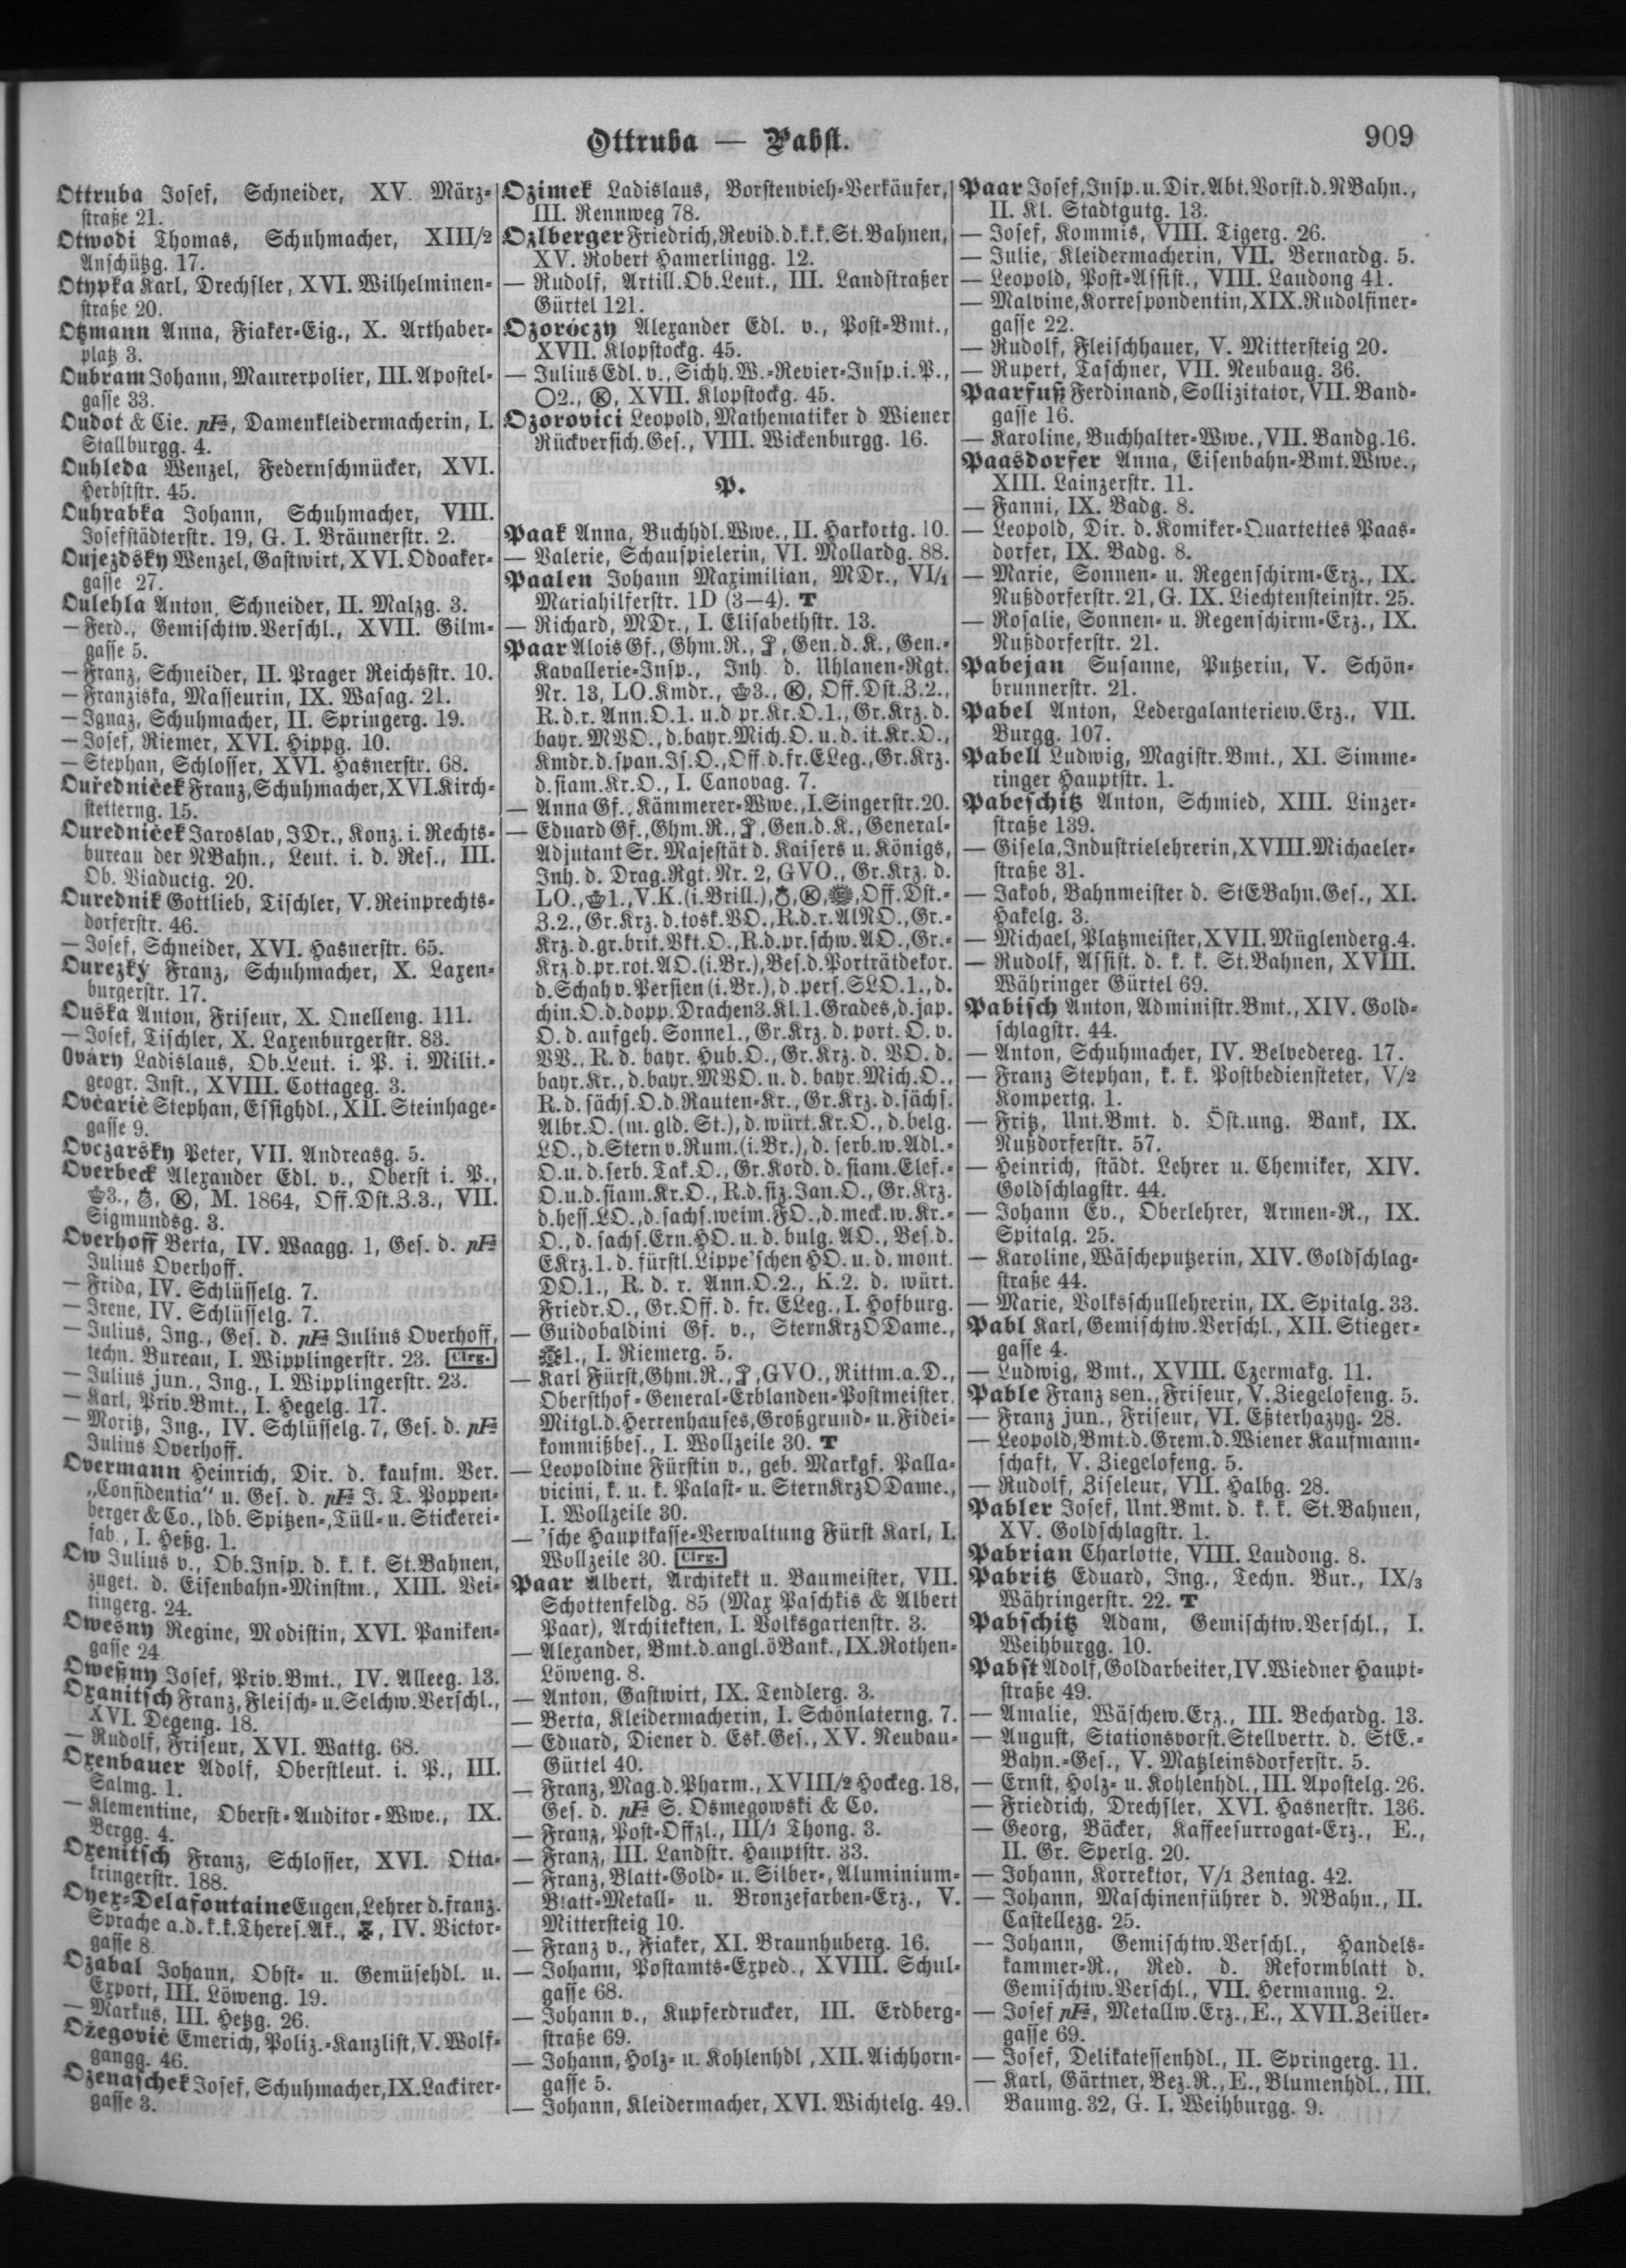 Ottruba — Pabst.
909
Ottruba Josef, Schneider, XV. März-
straße 21.
Otwodi Thomas, Schuhmacher, XIII/2
Anschützg. 17.
Otypka Karl, Drechsler, XVI. Wilhelminen-
straße 20.
Otzmann Anna, Fiaker-Eig., X. Arthaber-
platz 3.
Oubram Johann, Maurerpolier, III. Apostel-
gasse 33.
Oudot & Cie. pF, Damenkleidermacherin, I.
Stallburgg. 4.
Ouhleda Wenzel, Federnschmücker, XVI.
Herbststr. 45.
Ouhrabka Johann, Schuhmacher, VIII.
Josefstädterstr. 19, G. I. Bräunerstr. 2.
Oujezdsky Wenzel, Gastwirt, XVI. Odoaker-
gasse 27.
Oulehla Anton, Schneider, II. Malzg. 3.
— Ferd., Gemischtw.Verschl., XVII. Gilm-
gasse 5.
— Franz, Schneider, II. Prager Reichsstr. 10.
— Franziska, Masseurin, IX. Wasag. 21.
— Ignaz, Schuhmacher, II. Springerg. 19.
— Josef, Riemer, XVI. Hippg. 10.
— Stephan, Schlosser, XVI. Hasnerstr. 68.
Ouředniček Franz, Schuhmacher, XVI. Kirch-
stetterng. 15.
Ouredniček Jaroslav, JDr., Konz. i. Rechts-
bureau der NBahn., Leut. i. d. Res., III.
Ob. Viaductg. 20.
Ourednik Gottlieb, Tischler, V. Reinprechts-
dorferstr. 46.
— Josef, Schneider, XVI. Hasnerstr. 65.
Ourezky Franz, Schuhmacher, X. Laxen-
burgerstr. 17.
Ouska Anton, Friseur, X. Quelleng. 111.
— Josef, Tischler, X. Laxenburgerstr. 83.
Ováry Ladislaus, Ob.Leut. i. P. i. Milit.-
geogr. Inst., XVIII. Cottageg. 3.
Ovčarič Stephan, Essighdl., XII. Steinhage-
gasse 9.
Ovczarsky Peter, VII. Andreasg. 5.
Overbeck Alexander Edl. v., Oberst i. P.,
3., Ⓚ, M. 1864, Off.Dst.Z.3., VII.
Sigmundsg. 3.
Overhoff Berta, IV. Waagg. 1, Ges. d. pF
Julius Overhoff.
— Frida, IV. Schlüsselg. 7.
— Irene, IV. Schlüsselg. 7.
— Julius, Ing., Ges. d. pF Julius Overhoff,
techn. Bureau, I. Wipplingerstr. 23. Clrg.
— Julius jun., Ing., I. Wipplingerstr. 23.
— Karl, Priv.Bmt., I. Hegelg. 17.
— Moritz, Ing., IV. Schlüsselg. 7, Ges. d. pF
Julius Overhoff.
Overmann Heinrich, Dir. d. kaufm. Ver.
„Confidentia“ u. Ges. d. pF J. T. Poppen-
berger & Co., ldb. Spitzen-, Tüll- u. Stickerei-
fab., I. Heßg. 1.
Ow Julius v., Ob.Insp. d. k. k. St.Bahnen,
zuget. d. Eisenbahn-Minstm., XIII. Vei-
tingerg. 24.
Owesny Regine, Modistin, XVI. Paniken-
gasse 24
Oweßny Josef, Priv.Bmt., IV. Alleeg. 13.
Oxanitsch Franz, Fleisch- u. Selchw.Verschl.,
XVI. Degeng. 18.
— Rudolf, Friseur, XVI. Wattg. 68.
Oxenbauer Adolf, Oberstleut. i. P., III.
Salmg. 1.
— Klementine, Oberst-Auditor-Wwe., IX.
Bergg. 4.
Oxenitsch Franz, Schlosser, XVI. Otta-
kringerstr. 188.
Oyex-Delafontaine Eugen, Lehrer d. franz.
Sprache a. d. k. k. Theres. Ak., IV. Victor-
gasse 8.
Ozabal Johann, Obst- u. Gemüsehdl. u.
Export, III. Löweng. 19.
— Markus, III. Hetzg. 26.
Ožegovič Emerich, Poliz.-Kanzlist, V. Wolf-
gangg. 46.
Ozenaschek Josef, Schuhmacher, IX. Lackirer-
gasse 3.
Ozimek Ladislaus, Borstenvieh-Verkäufer,
III. Rennweg 78.
Ozlberger Friedrich, Revid. d. k. k. St.Bahnen,
XV. Robert Hamerlingg. 12.
— Rudolf, Artill.Ob.Leut., III. Landstraßer
Gürtel 121.
Ozoróczy Alexander Edl. v., Post-Bmt.,
XVII. Klopstockg. 45.
— Julius Edl. v., Sichh.W.-Revier-Insp. i. P.,
O2., Ⓚ, XVII. Klopstockg. 45.
Ozorovici Leopold, Mathematiker d. Wiener
Rückversich.Ges., VIII. Wickenburgg. 16.
P.
Paak Anna, Buchhdl.Wwe., II. Harkortg. 10.
— Valerie, Schauspielerin, VI. Mollardg. 88.
Paalen Johann Maximilian, MDr., VI/1
Mariahilferstr. 1D (3—4). T
— Richard, MDr., I. Elisabethstr. 13.
Paar Alois Gf., Ghm.R., Gen. d. K., Gen.-
Kavallerie-Insp., Inh. d. Uhlanen-Rgt.
Nr. 13, LO.Kmdr., 3., Ⓚ, Off.Dst.Z.2.,
R. d. r. Ann.O.1. u. d pr.Kr.O.1., Gr.Krz. d.
bayr. MVO., d. bayr. Mich.O. u. d. it. Kr.O.,
Kmdr. d. span. Is.O., Off. d. fr. ELeg., Gr.Krz.
d. siam. Kr.O., I. Canovag. 7.
— Anna Gf., Kämmerer-Wwe., I. Singerstr. 20.
— Eduard Gf., Ghm.R., Gen. d. K., General-
Adjutant Sr. Majestät d. Kaisers u. Königs,
Inh. d. Drag.Rgt. Nr. 2, GVO., Gr.Krz. d.
LO., 1., V.K. (i. Brill.), Ⓚ, Off.Dst.-
Z.2., Gr.Krz. d. tosk. VO., R. d. r. AlNO., Gr.-
Krz. d. gr. brit. Vkt.O., R. d. pr. schw. AO., Gr.-
Krz. d. pr. rot. AO. (i. Br.), Bes. d. Porträtdekor.
d. Schah v. Persien (i. Br.), d. pers. SLO.1., d.
chin. O. d. dopp. Drachen 3. Kl. 1. Grades, d. jap.
O. d. aufgeh. Sonne 1., Gr.Krz. d. port. O. v.
VV., R. d. bayr. Hub.O., Gr.Krz. d. VO. d.
bayr. Kr., d. bayr. MVO. u. d. bayr. Mich.O.,
R. d. sächs. O. d. Rauten-Kr., Gr.Krz. d. sächs.
Albr.O. (m. gld. St.), d. würt. Kr.O., d. belg.
LO., d. Stern v. Rum. (i. Br.), d. serb. w. Adl.-
O. u. d. serb. Tak.O., Gr.Kord. d. siam. Elef.-
O. u. d. siam. Kr.O., R. d. siz. Jan.O., Gr.Krz.
d. hess. LO., d. sachs. weim. FO., d. meck. w. Kr.-
O., d. sachs. Ern.HO. u. d. bulg. AO., Bes. d.
EKrz.1. d. fürstl. Lippe'schen HO. u. d. mont.
DO.1., R. d. r. Ann.O.2., K.2. d. würt.
Friedr.O., Gr.Off. d. fr. ELeg., I. Hofburg.
— Guidobaldini Gf. v., SternKrzODame.,
1., I. Riemerg. 5.
— Karl Fürst, Ghm.R., GVO., Rittm. a. D.,
Obersthof-General-Erblanden-Postmeister,
Mitgl. d. Herrenhauses, Großgrund- u. Fidei-
kommißbes., I. Wollzeile 30. T
— Leopoldine Fürstin v., geb. Markgf. Palla-
vicini, k. u. k. Palast- u. SternKrzODame.,
I. Wollzeile 30.
— 'sche Hauptkasse-Verwaltung Fürst Karl, I.
Wollzeile 30. Clrg.
Paar Albert, Architekt u. Baumeister, VII.
Schottenfeldg. 85 (Max Paschkis & Albert
Paar), Architekten, I. Volksgartenstr. 3.
— Alexander, Bmt. d. angl. öBank., IX. Rothen-
Löweng. 8.
— Anton, Gastwirt, IX. Tendlerg. 3.
— Berta, Kleidermacherin, I. Schönlaterng. 7.
— Eduard, Diener d. Esk.Ges., XV. Neubau-
Gürtel 40.
— Franz, Mag. d. Pharm., XVIII/2 Hockeg. 18,
Ges. d. pF S. Osmegowski & Co.
— Franz, Post-Offzl., III/1 Thong. 3.
— Franz, III. Landstr. Hauptstr. 33.
— Franz, Blatt-Gold- u. Silber-, Aluminium-
Blatt-Metall- u. Bronzefarben-Erz., V.
Mittersteig 10.
— Franz v., Fiaker, XI. Braunhuberg. 16.
— Johann, Postamts-Exped., XVIII. Schul-
gasse 68.
— Johann v., Kupferdrucker, III. Erdberg-
straße 69.
— Johann, Holz- u. Kohlenhdl, XII. Aichhorn-
gasse 5.
— Johann, Kleidermacher, XVI. Wichtelg. 49.
Paar Josef, Insp. u. Dir. Abt. Vorst. d. NBahn.,
II. Kl. Stadtgutg. 13.
— Josef, Kommis, VIII. Tigerg. 26.
— Julie, Kleidermacherin, VII. Bernardg. 5.
— Leopold, Post-Assist., VIII. Laudong 41.
— Malvine, Korrespondentin, XIX. Rudolfiner-
gasse 22.
— Rudolf, Fleischhauer, V. Mittersteig 20.
— Rupert, Taschner, VII. Neubaug. 36.
Paarfuß Ferdinand, Sollizitator, VII. Band-
gasse 16.
— Karoline, Buchhalter-Wwe., VII. Bandg. 16.
Paasdorfer Anna, Eisenbahn-Bmt.Wwe.,
XIII. Lainzerstr. 11.
— Fanni, IX. Badg. 8.
— Leopold, Dir. d. Komiker-Quartettes Paas-
dorfer, IX. Badg. 8.
— Marie, Sonnen- u. Regenschirm-Erz., IX.
Nußdorferstr. 21, G. IX. Liechtensteinstr. 25.
— Rosalie, Sonnen- u. Regenschirm-Erz., IX.
Nußdorferstr. 21.
Pabejan Susanne, Putzerin, V. Schön-
brunnerstr. 21.
Pabel Anton, Ledergalanteriew.Erz., VII.
Burgg. 107.
Pabell Ludwig, Magistr.Bmt., XI. Simme-
ringer Hauptstr. 1.
Pabeschitz Anton, Schmied, XIII. Linzer-
straße 139.
— Gisela, Industrielehrerin, XVIII. Michaeler-
straße 31.
— Jakob, Bahnmeister d. StEBahn.Ges., XI.
Hakelg. 3.
— Michael, Platzmeister, XVII. Müglenderg. 4.
— Rudolf, Assist. d. k. k. St.Bahnen, XVIII.
Währinger Gürtel 69.
Pabisch Anton, Administr.Bmt., XIV. Gold-
schlagstr. 44.
— Anton, Schuhmacher, IV. Belvedereg. 17.
— Franz Stephan, k. k. Postbediensteter, V/2
Kompertg. 1.
— Fritz, Unt.Bmt. d. Öst.ung. Bank, IX.
Nußdorferstr. 57.
— Heinrich, städt. Lehrer u. Chemiker, XIV.
Goldschlagstr. 44.
— Johann Ev., Oberlehrer, Armen-R., IX.
Spitalg. 25.
— Karoline, Wäscheputzerin, XIV. Goldschlag-
straße 44.
— Marie, Volksschullehrerin, IX. Spitalg. 33.
Pabl Karl, Gemischtw.Verschl., XII. Stieger-
gasse 4.
— Ludwig, Bmt., XVIII. Czermakg. 11.
Pable Franz sen., Friseur, V. Ziegelofeng. 5.
— Franz jun., Friseur, VI. Eßterhazyg. 28.
— Leopold, Bmt. d. Grem. d. Wiener Kaufmann-
schaft, V. Ziegelofeng. 5.
— Rudolf, Ziseleur, VII. Halbg. 28.
Pabler Josef, Unt.Bmt. d. k. k. St.Bahnen,
XV. Goldschlagstr. 1.
Pabrian Charlotte, VIII. Laudong. 8.
Pabritz Eduard, Ing., Techn. Bur., IX/3
Währingerstr. 22. T
Pabschitz Adam, Gemischtw.Verschl., I.
Weihburgg. 10.
Pabst Adolf, Goldarbeiter, IV. Wiedner Haupt-
straße 49.
— Amalie, Wäschew.Erz., III. Bechardg. 13.
— August, Stationsvorst.Stellvertr. d. StE.-
Bahn.-Ges., V. Matzleinsdorferstr. 5.
— Ernst, Holz- u. Kohlenhdl., III. Apostelg. 26.
— Friedrich, Drechsler, XVI. Hasnerstr. 136.
— Georg, Bäcker, Kaffeesurrogat-Erz., E.,
II. Gr. Sperlg. 20.
— Johann, Korrektor, V/1 Zentag. 42.
— Johann, Maschinenführer d. NBahn., II.
Castellezg. 25.
— Johann, Gemischtw.Verschl., Handels-
kammer-R., Red. d. Reformblatt d.
Gemischtw.Verschl., VII. Hermanng. 2.
— Josef pF, Metallw.Erz., E., XVII. Zeiller-
gasse 69.
— Josef, Delikatessenhdl., II. Springerg. 11.
— Karl, Gärtner, Bez.R., E., Blumenhdl., III.
Baumg. 32, G. I. Weihburgg. 9.